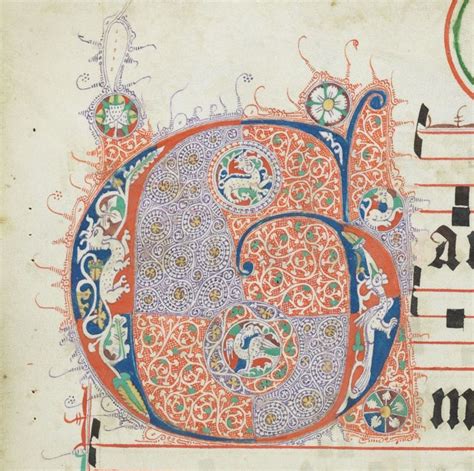 G
a
m